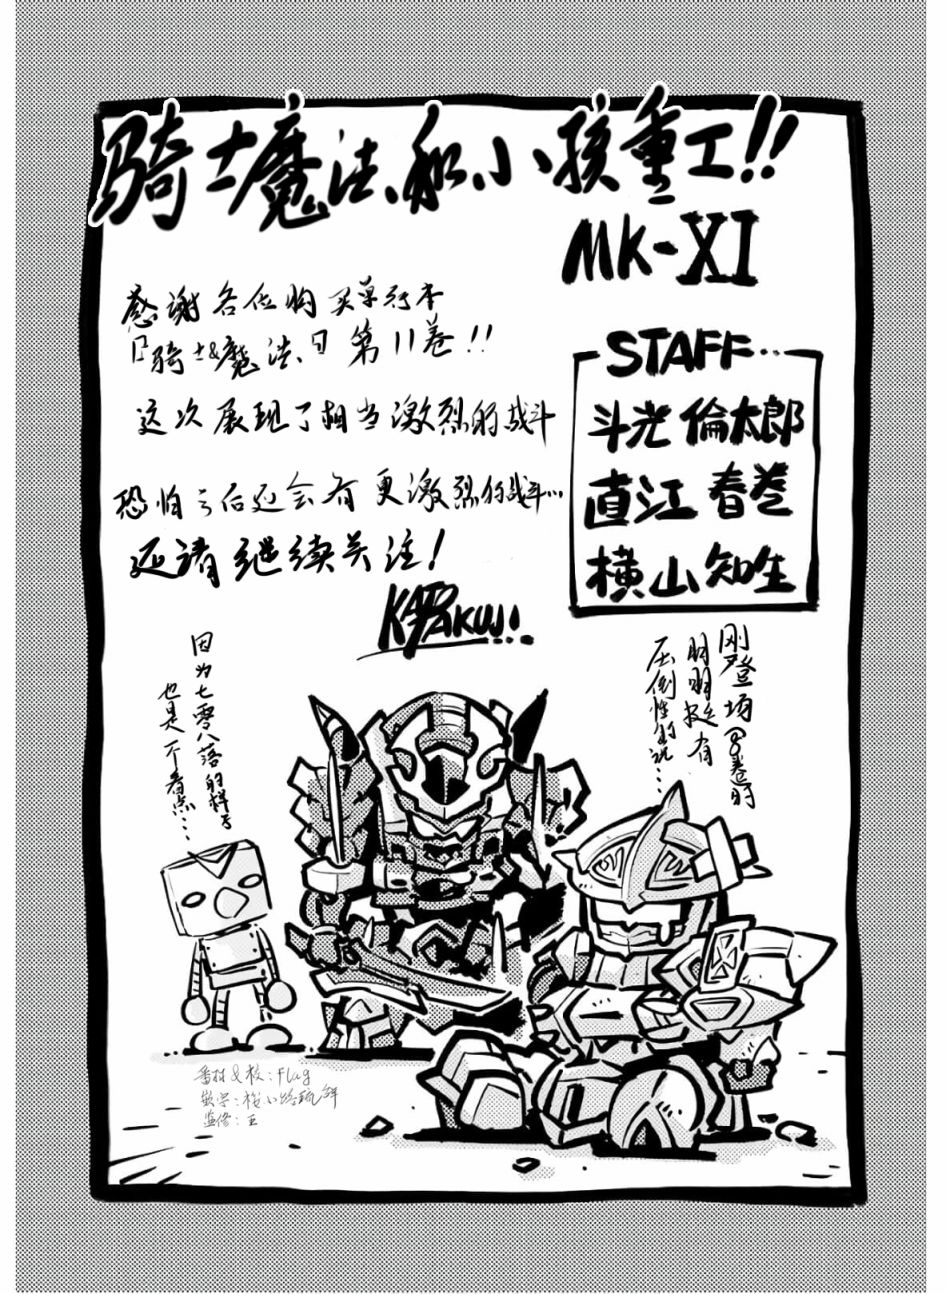 骑士魔法和小孩重工!!
MK-XI
感谢各位购买单行本
『骑士&魔法』第11卷!!
这次展现了相当激烈的战斗
恐怕之后还会有更激烈的战斗…
还请继续关注!
KATOTAKUJI
STAFF…
斗光 倫太郎
直江 春巻
横山 知生
刚登场8卷时
明明挺有
压倒性的说…
因为七零八落的样子
也是不看点…
&校:Flag
嵌字:
监修:王